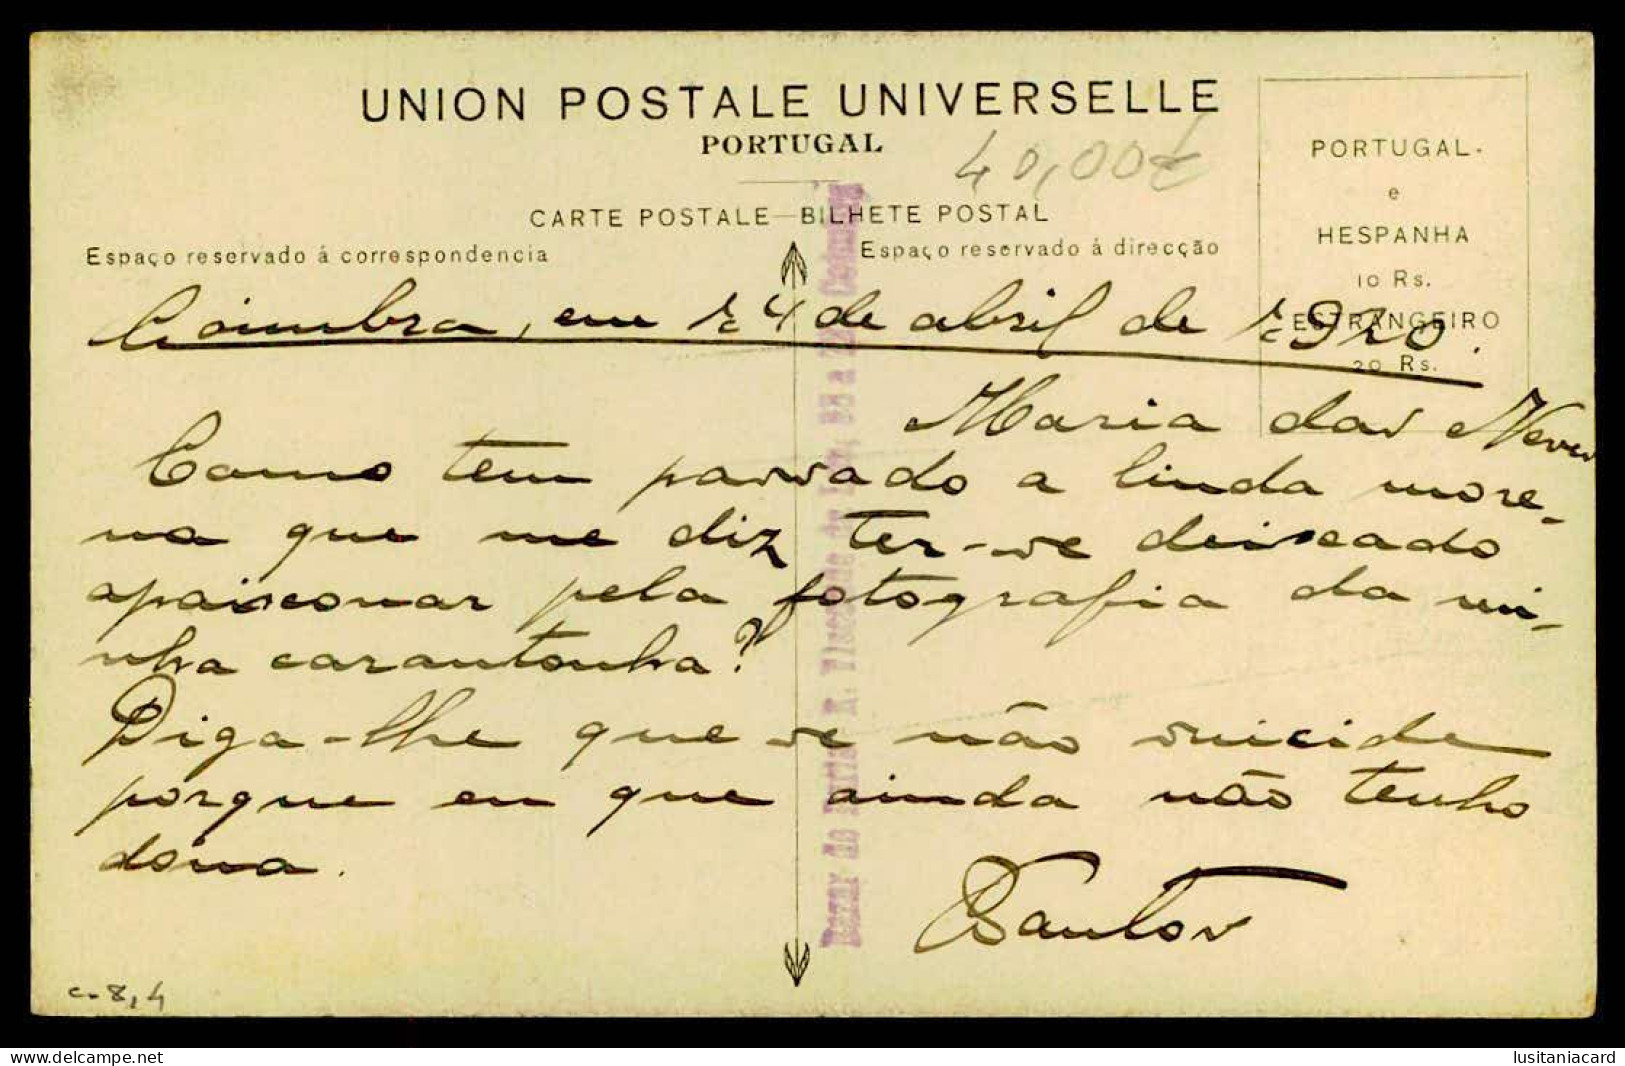 UNION POSTALE UNIVERSELLE
PORTUGAL
40,00€
CARTE POSTALE—BILHETE POSTAL
Espaço reservado á correspondencia
Espaço reservado á direcção
PORTUGAL.
e
HESPANHA
10 Rs.
ESTRANGEIRO
20 Rs.
Coimbra, em 14 de abril de 1910.
Maria das Neves
Como tem passado a linda more-
na que me diz ter-se deixado
apaixonar pela fotografia da mi-
nha carantonha?
Diga-lhe que se não suicide
porque eu que ainda não tenho
dona.
Santos
Bazar de Paris R. Visconde da Luz,
c-8,4
lusitaniacard
www.delcampe.net